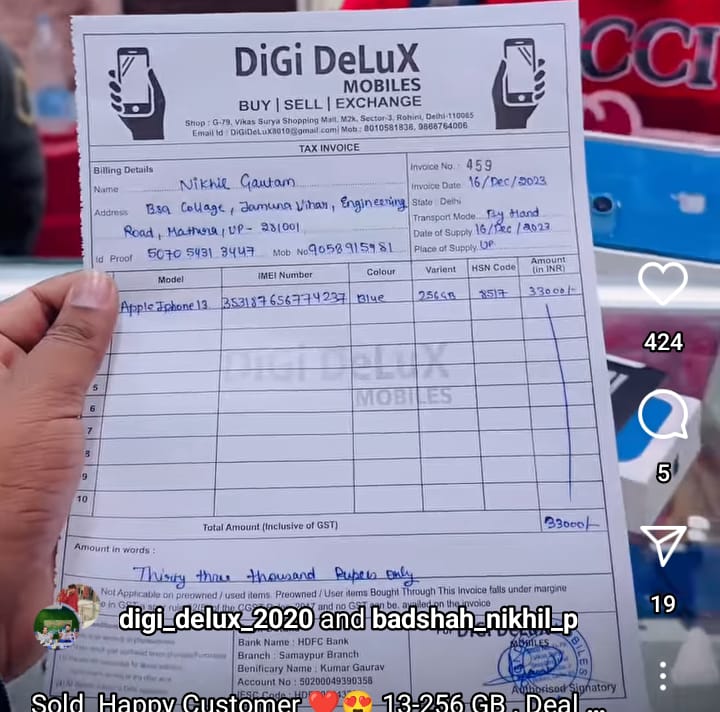 CCI
DiGi DeLuX
MOBILES
BUY | SELL | EXCHANGE
Shop : G-79, Vikas Surya Shopping Mall, M2k, Sector-3, Rohini, Delhi-110085
Email Id : DiGiDeLuX8010@gmail.com| Mob.: 8010581836, 9868764006
TAX INVOICE
Billing Details
Name Nikhil Gautam
Address Bsa Collage, Jamuna Vihar, Engineering
Road, Mathura, UP- 281001
Id Proof 5070 5431 3447 Mob No 9058915981
Invoice No. 459
Invoice Date 16/Dec/2023
State : Delhi
Transport Mode By Hand
Date of Supply 16/Dec/2023
Place of Supply UP
Model IMEI Number Colour Varient HSN Code Amount (in INR)
Apple Iphone 13 353187656774237 Blue 256GB 8517 33000/-
DiGi DeLuX
MOBILES
5
6
7
8
9
10
Total Amount (Inclusive of GST) 33000/-
Amount in words :
Thirty three thousand Rupees Only
Not Applicable on preowned / used items. Preowned / User items Bought Through This Invoice falls under margine
and no GST can be. availed on the invoice
digi_delux_2020 and badshah_nikhil_p
Bank Name : HDFC Bank
Branch : Samaypur Branch
Benificary Name : Kumar Gaurav
Account No : 50200049390358
IFSC Code : HDF
MOBILES
Authorised Signatory
Sold Happy Customer ❤️😍 13-256 GB . Deal ...
424
5
19